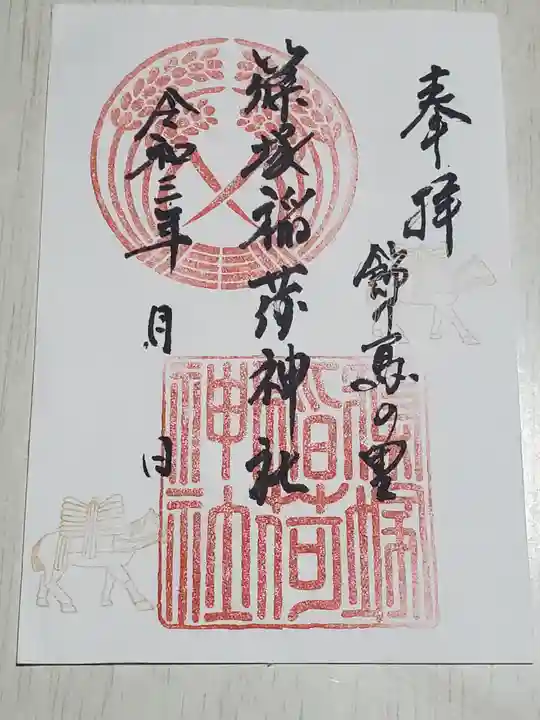 奉拝
飾り馬の里
篠塚稲荷神社
令和三年 月 日
篠塚
稲荷
神社